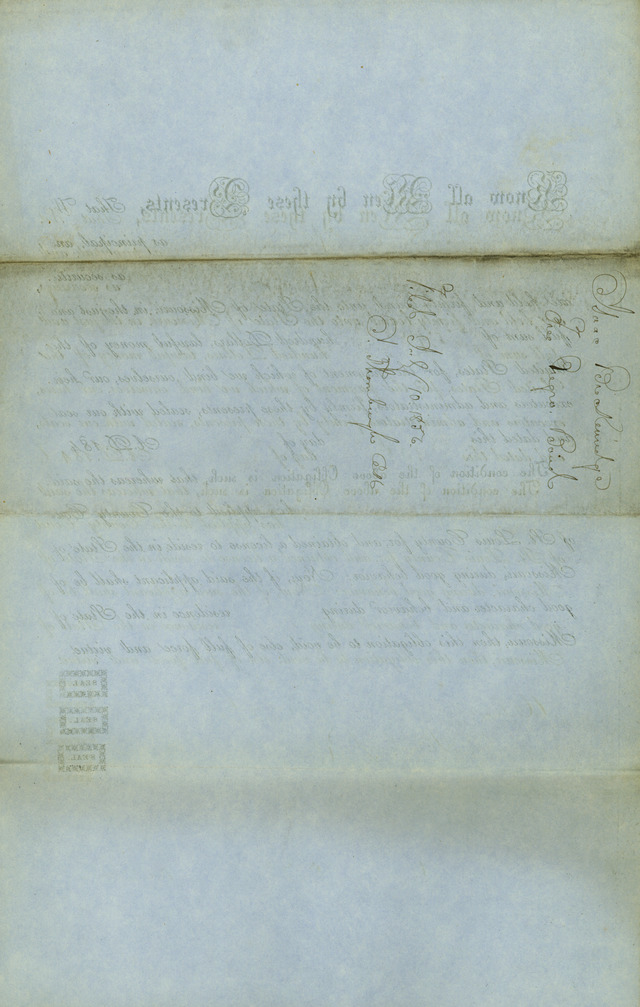 Breckenridge
Free Negro Bond
Filed July 10 1856
Know all Men by these Presents, That We,
as principal, an
as securit
held and firmly bound unto the State of Missouri, in the just and
sum of hundred Dollars, lawful money of the
States, for the payment of which we bind ourselves, our heir
and administrators, firmly by these presents, sealed with our seal
dated this day of A. D. 184
The condition of the above Obligation is such, that whereas the said
applied to the County Cou
of St. Louis County for, and obtained a license to reside in the State of
Missouri, during good behavior: Now, if the said applicant shall be of
good character and behavior during residence in the State of
Missouri, then this obligation to be void, else of full force and virtue
SEAL
SEAL
SEAL